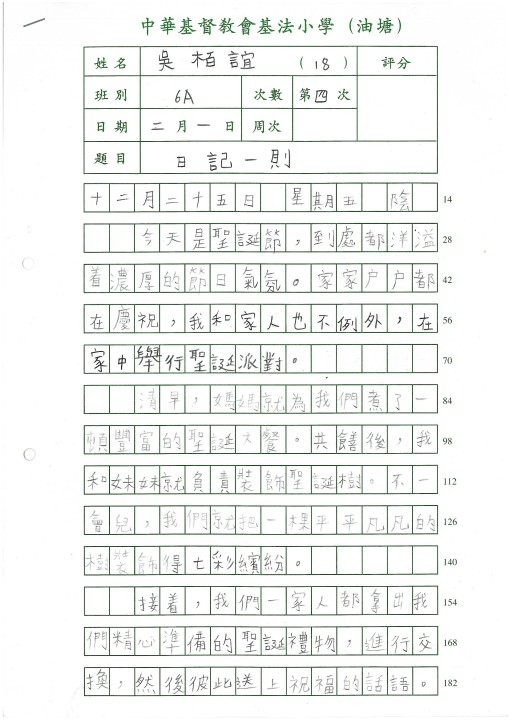 中華基督教會基法小學（油塘）
姓名 吳栢誼 (18) 評分
班別 6A 次數 第四次
日期 二月一日 周次
題目 日記一則
十二月二十五日 星期五 陰 14
今天是聖誕節，到處都洋溢 28
着濃厚的節日氣氛。家家户户都 42
在慶祝，我和家人也不例外，在 56
家中舉行聖誕派對。 70
清早，媽媽就為我們煮了一 84
頓豐富的聖誕大餐。共饍後，我 98
和妹妹就負責裝飾聖誕樹。不一 112
會兒，我們就把一棵平平凡凡的 126
樹裝飾得七彩繽紛。 140
接着，我們一家人都拿出我 154
們精心準備的聖誕禮物，進行交 168
換，然後彼此送上祝福的話語。 182